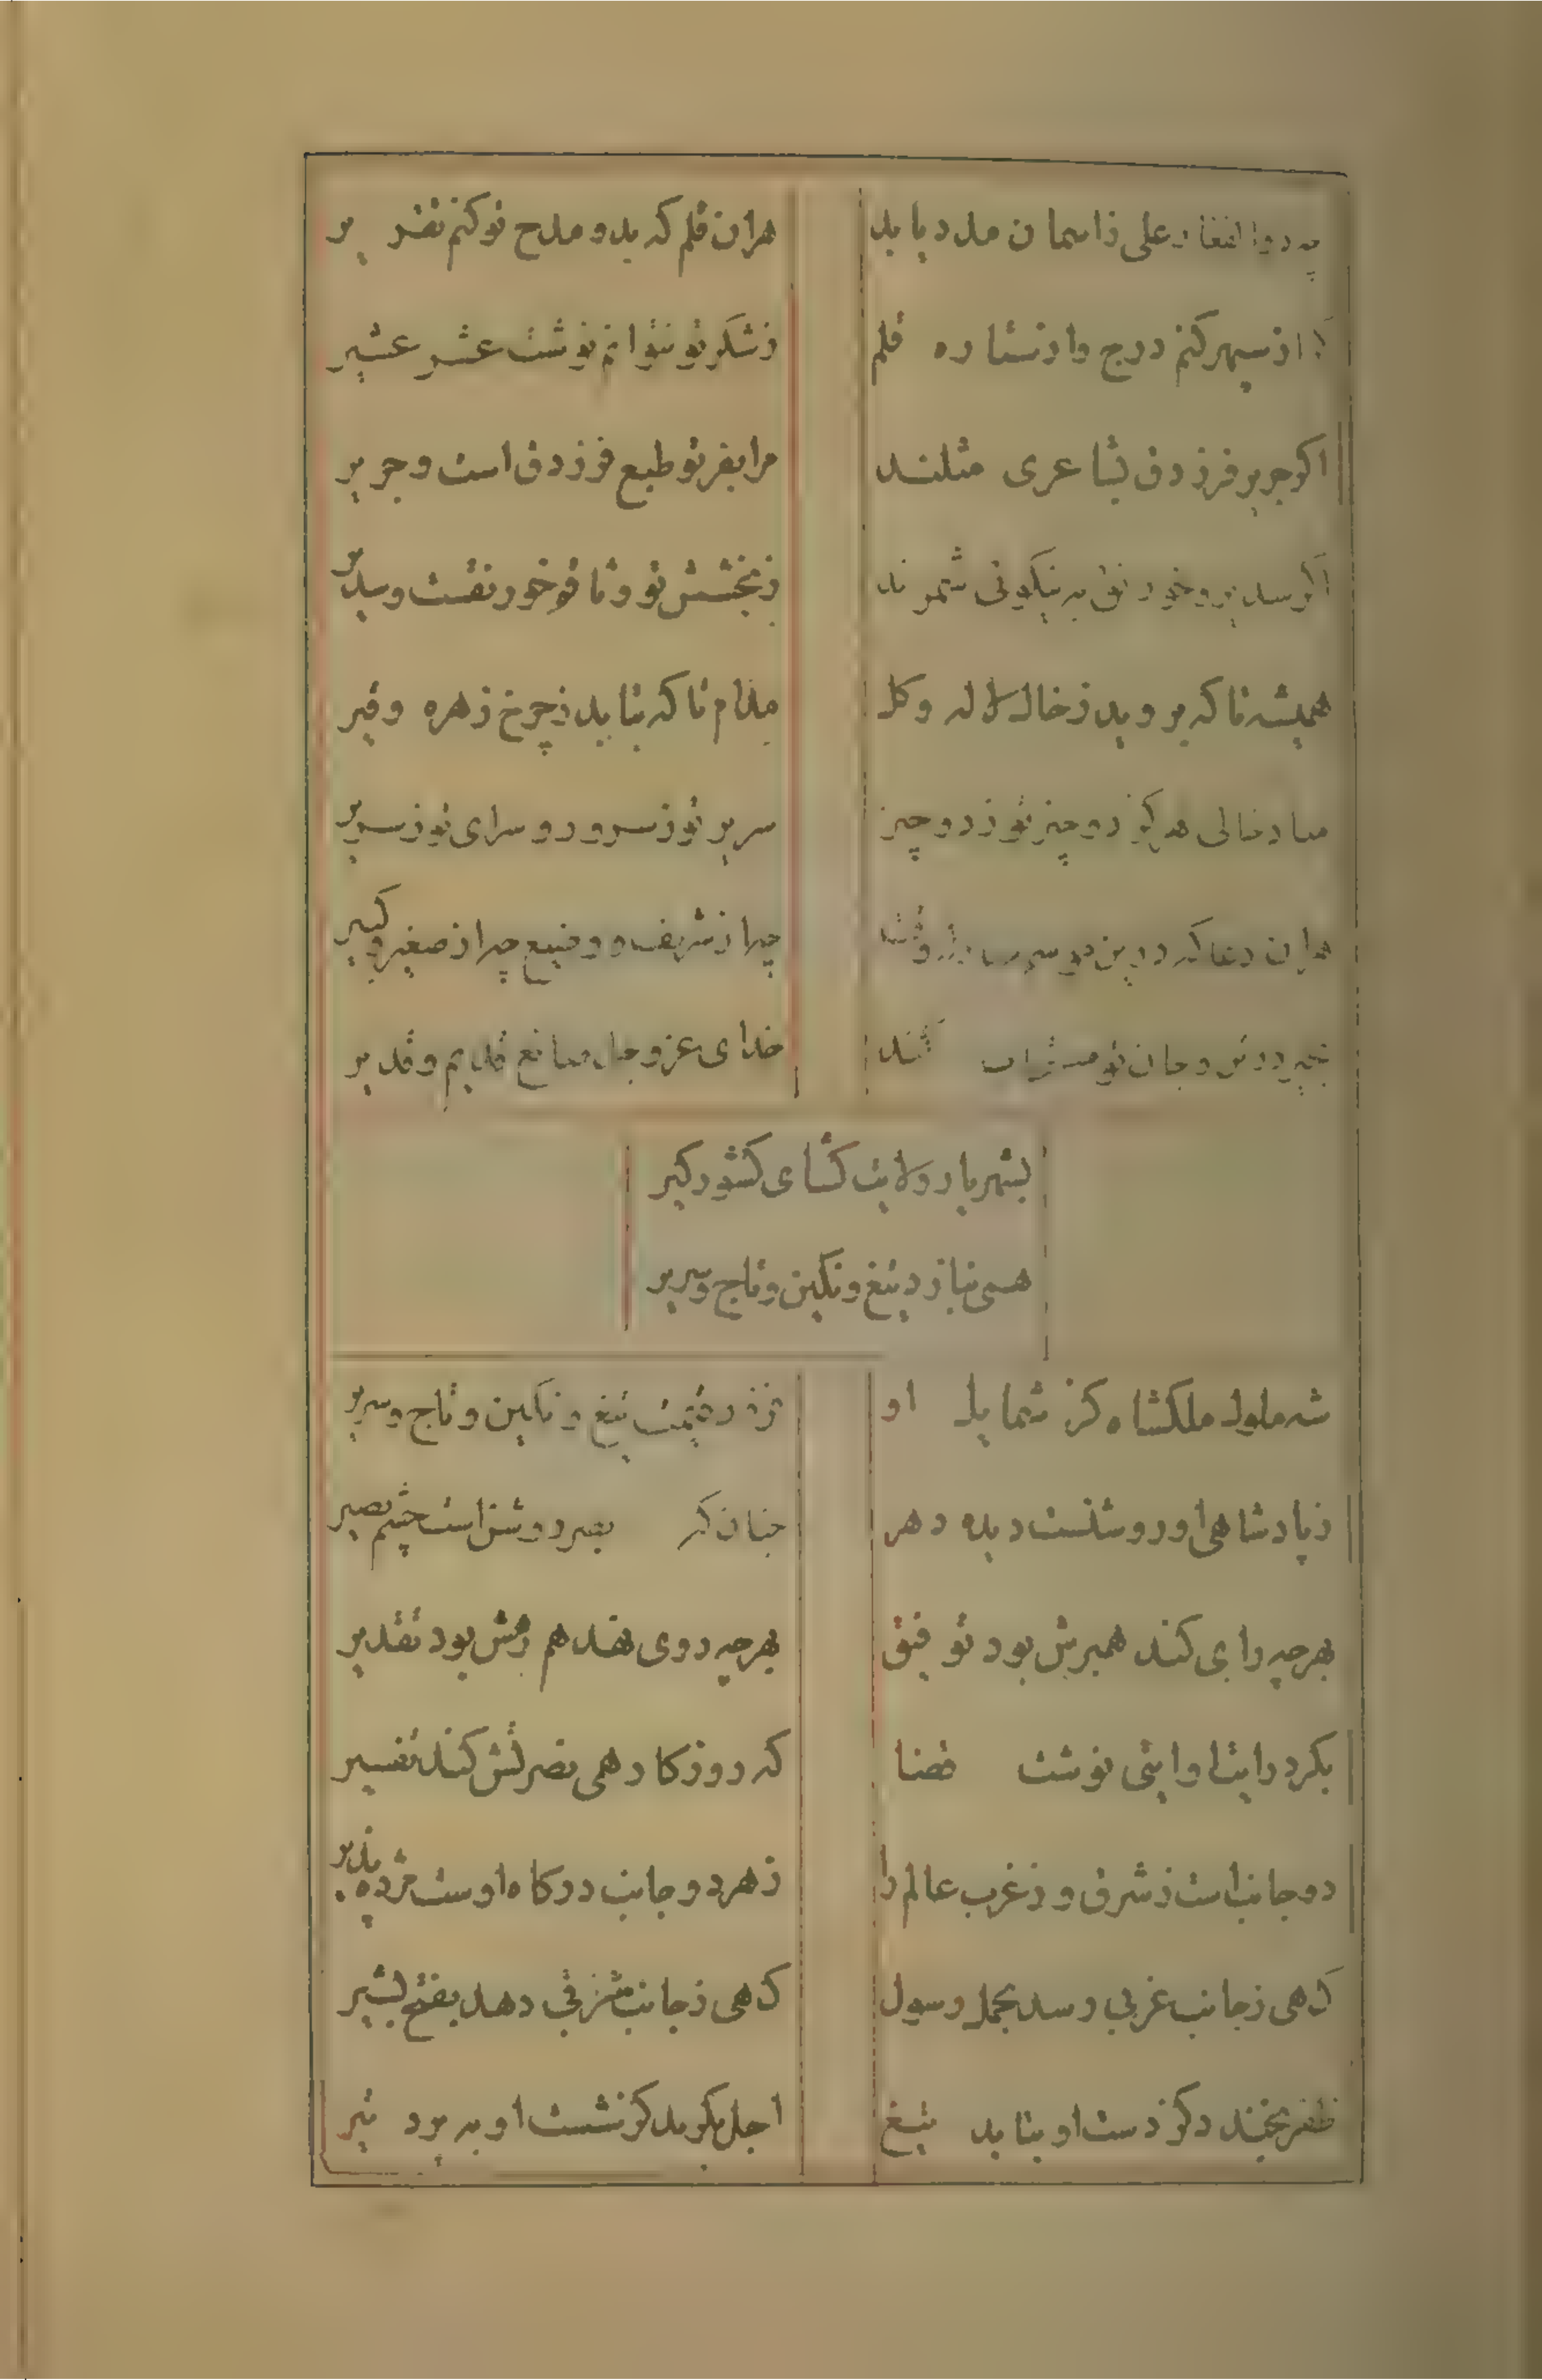 به ذوالفقار علی ز اسمان مدد باید
هران قلم که بدو مدح تو کنم تقریر
از سپهر کنم درج و از ستاره قلم
ز شکر تو نتوانم نوشت عشر عشیر
اکر جریر و فرزدق بشاعری مثلند
مرا بفر تو طبع فرزدق است و جریر
اکر سدیر و خورنق به نیکوئی شمرند
ز بخشش تو وثاقم خورنقست و سدیر
همیشه تا که بروید ز خاک لاله و کل
مدام تا که بتابد ز چرخ زهره و تیر
مباد خالی هرکز دو چیز تو ز دو چیز
سریر تو ز سرور و سرای تو ز سریر
هران دعا که درین
چه از شریف و وضیع چه از صغیر و کبیر
بخیر در تن و جان تو کند
خدای عز و جل صانع قدیم و قدیر
بشهریار ولایت کشای کشور کیر
همی بنازد تیغ و نکین و تاج و سریر
شه ملوک ملکشاه کز شمایل او
فزود قیمت تیغ و نکین و تاج و سریر
ز پادشاهی او روشنست دیده دهر
چنان که بصر روشن است چشم بصیر
بهر چه رای کند همبرش بود توفیق
بهر چه روی نهد هم رهش بود تقدیر
بکرد رایت او ایتی نوشت قضا
که روزکار همی نصرتش کند تفسیر
دو جانب است ز شرق و ز غرب عالم را
ز هر دو جانب درکاه اوست مژده پذیر
کهی ز جانب غربی رسد بحمل رسول
کهی ز جانب شرقی دهد بفتح بشیر
ظفر بخندد کز دست او بتابد تیغ
اجل بکرید کز شست او بپرد تیر